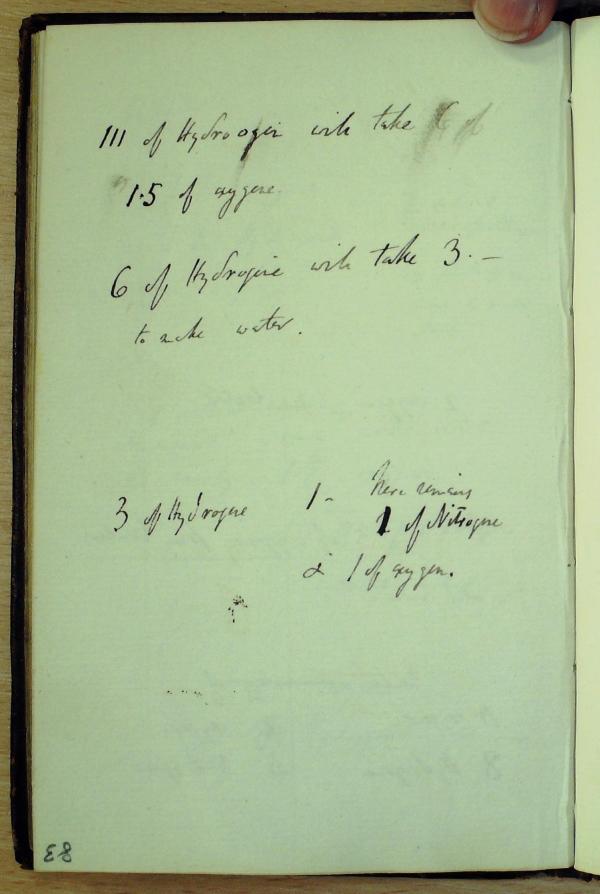 111 of Hydrogen will take
1.5 of oxygene
6 of Hydrogene will take 3. —
to make water.
3 of Hydrogene 1 - there remains
1 of Nitrogene
& 1 of oxygen.
83